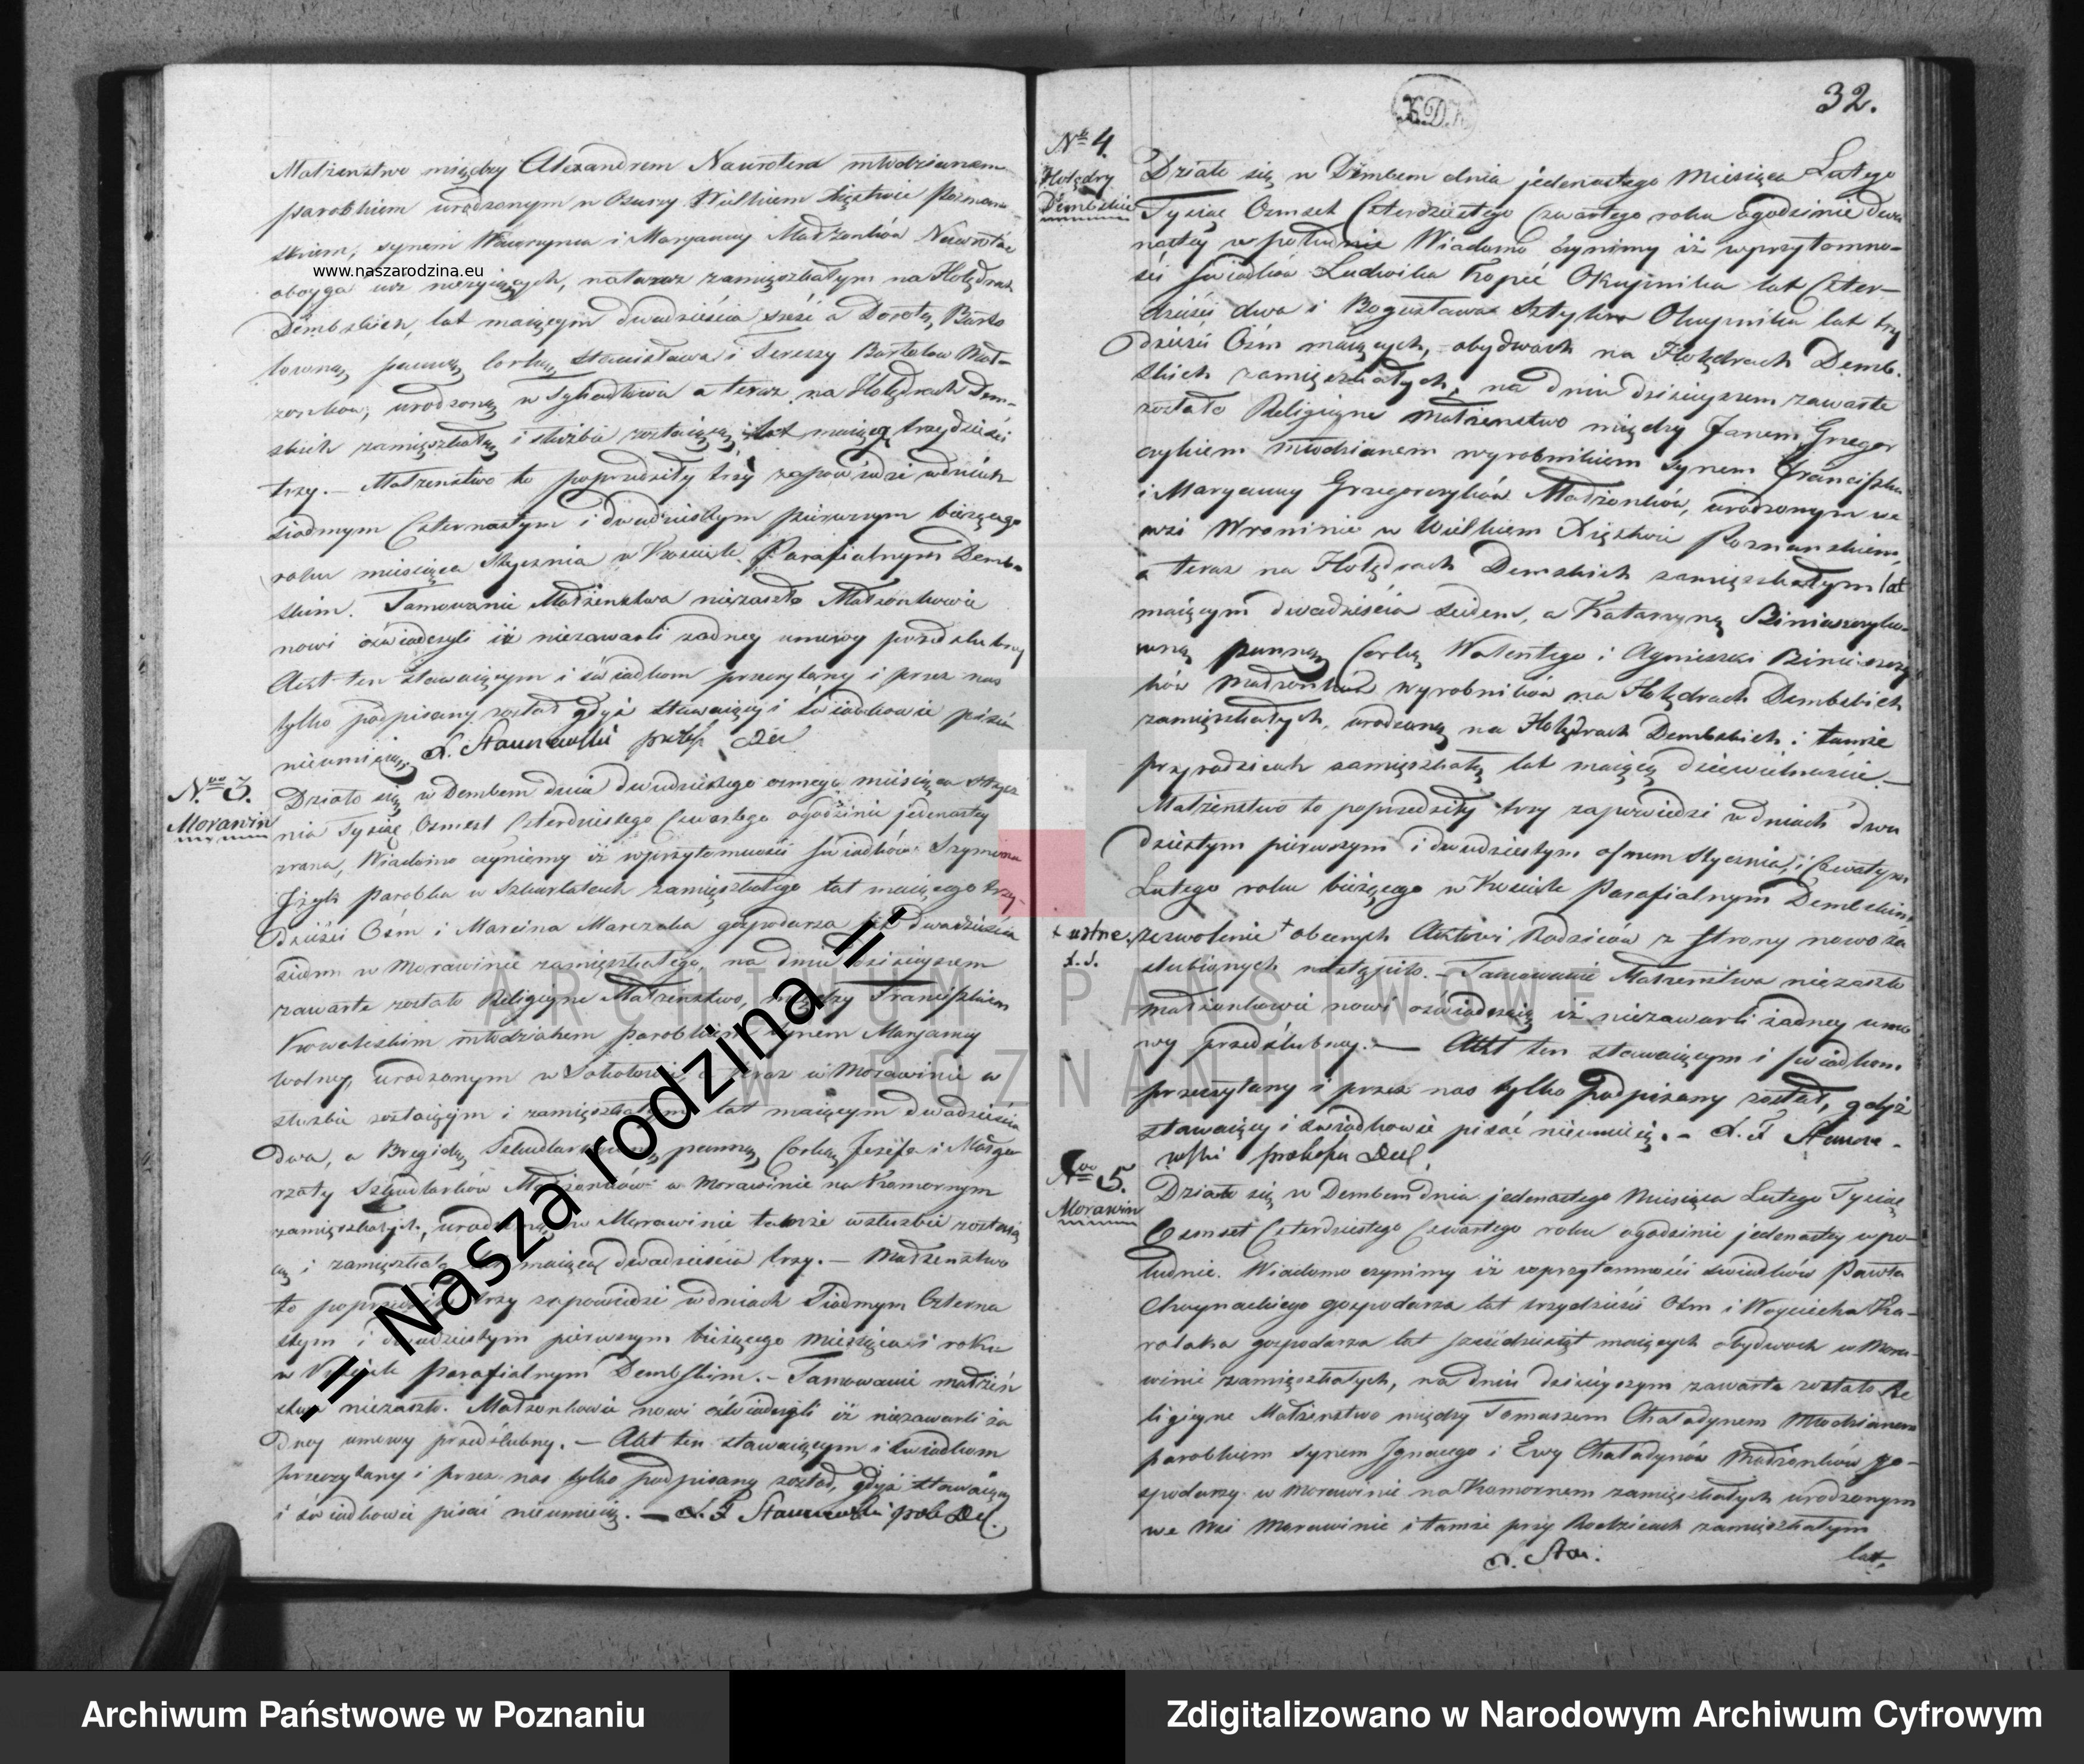 Małżenstwo między Alexandrem Nawrotem młodzianem
parobkiem urodzonym w Wielkiem Xięstwie Poznan
skiem, synem Wawrzynca i Maryanny Małżonków Nawrotów
www.naszarodzina.eu
oboyga iuż nieżyiących, na teraz zamięszkałym na Holędrach
Dembskich, lat maiącym dwadzieścia sześć a Dorotą Barto
łowną panną Corką Stanisława i Tereszy Bartołow Mał-
żonków, urodzoną w a teraz na Holędrach Dem-
skich zamięszkałą i służbie zostaiącą lat maiącą trzydzieści
trzy. — Małżenstwo to poprzedziły trzy zapowiedzi w dniach
siodmym Czternastym i dwudziestym pierwszym bieżącego
roku miesiąca Stycznia w Kosciele Parafialnym Demb-
skim. Tamowanie Małżenstwa niezaszło Małżonkowie
nowi oświadczyli iż niezawarli żadney umowy przedślubney
Akt ten stawaiącym i świadkom przeczytany i przez nas
tylko podpisany został gdyż stawaiący i świadkowie pisać
nieumieią.
No 3.
Morawin
Działo się w Dembem dnia dwudziestego osmego miesiąca Stycz
nia Tysiąc Osmset Czterdziestego Czwartego o godzinie jedenastey
zrana, Wiadomo czyniemy iż w przytomności świadków Szymona
parobka w zamięszkałego lat maiącego trzy-
dzieści Ośm i Marcina Marczaka gospodarza lat dwadzieścia
siedm w Morawinie zamięszkałego, na dniu dzisieyszem
zawarte zostało Religiyne Małżenstwo, między Franciszkiem
Kowalskim młodzianem parobkiem synem Maryanny
wolney, urodzonym w a teraz w Morawinie w
służbie zostaiącym i zamięszkałym lat maiącym dwadzieścia
dwa, a Brygidą panną Corką Jozefa i Małgo
rzaty Szkudlarków Małżonków w Morawinie na Komornym
zamięszkałych, urodzoną w Morawinie tamże w służbie zostaią
cą i zamięszkałą lat maiącą dwadzieścia trzy. — Małżenstwo
to poprzedziły trzy zapowiedzi w dniach Siodmym Czterna
stym i dwudziestym pierwszym bieżącego miesiąca i roku
w Kosciele Parafialnym Dembskim. — Tamowanie małżeń
stwa niezaszło. Małżonkowie nowi oświadczyli iż niezawarli ża
dney umowy przedślubney. — Akt ten stawaiącym i świadkom
przeczytany i przez nas tylko podpisany został, gdyż stawaiący
i świadkowie pisać nieumieią. —
-= Nasza rodzina =-
32.
No 4.
Holędry
Dembskie
Działo się w Dembem dnia jedenastego Miesiąca Lutego
Tysiąc Osmset Czterdziestego Czwartego roku o godzinie dwu
nastey w południe Wiadomo czynimy iż w przytomno-
ści świadków Ludwika Kopeć Okupnika lat Czter-
dzieści dwa i Bogusława Okupnika lat trzy
dzieści Ośm maiących, obydwóch na Holędrach Demb.
skich zamięszkałych, na dniu dzisieyszem zawarte
zostało Religiyne małżenstwo między Janem Grzegor
czykiem młodzianem wyrobnikiem synem Franciszka
i Maryanny Grzegorczyków Małżonków, urodzonym we
wsi Wroninie w Wielkiem Xięstwie Poznanskiem,
a teraz na Holędrach Demskich zamięszkałym lat
maiącym dwadzieścia siedem, a Katarzyną Biniaszczyko-
wną panną Corką Walentego i Agnieszki
ków małżonków wyrobników na Holędrach Dembskich
zamięszkałych, urodzoną na Holędrach Dembskich i tamże
przy rodzicach zamięszkałą lat maiącą dziewietnaście. —
Małżenstwo to poprzedziły trzy zapowiedzi w dniach dwu
dziestym pierwszym i dwudziestym osmem Stycznia, i Czwartym
Lutego roku bieżącego w Kosciele Parafialnym Dembskim
+ ustne zezwolenie + obecnych Aktowi Rodziców z strony nowo za
ślubionych nastąpiło. — Tamowanie Małżenstwa niezaszło
małżonkowie nowi oświadczaią iż niezawarli żadney umo
wy przedślubney. — Akt ten stawaiącym i świadkom
przeczytany i przez nas tylko podpisany został, gdyż
stawaiący i świadkowie pisać nieumieią. —
No 5.
Morawin
Działo się w Dembem dnia jedenastego Miesiąca Lutego Tysiąc
Osmset Czterdziestego Czwartego roku o godzinie jedenastey w po-
łudnie. Wiadomo czynimy iż w przytomności świadków Pawła
gospodarza lat trzydzieści Ośm i Woyciecha Ka-
rolaka gospodarza lat sześćdziesiąt maiących obydwóch w Mora-
winie zamięszkałych, na dniu dzisieyszym zawarte zostało Re
ligiyne Małżenstwo między Tomaszem Chaładynem Młodzianem
parobkiem synem Ignacego i Ewy Chaładynów Małżonków go-
spodarzy w Morawinie na Komornem zamięszkałych urodzonym
we Wsi Morawinie i tamże przy Rodzicach zamięszkałym
lat
ARCHIWUM PAŃSTWOWE
W POZNANIU
Archiwum Państwowe w Poznaniu
Zdigitalizowano w Narodowym Archiwum Cyfrowym